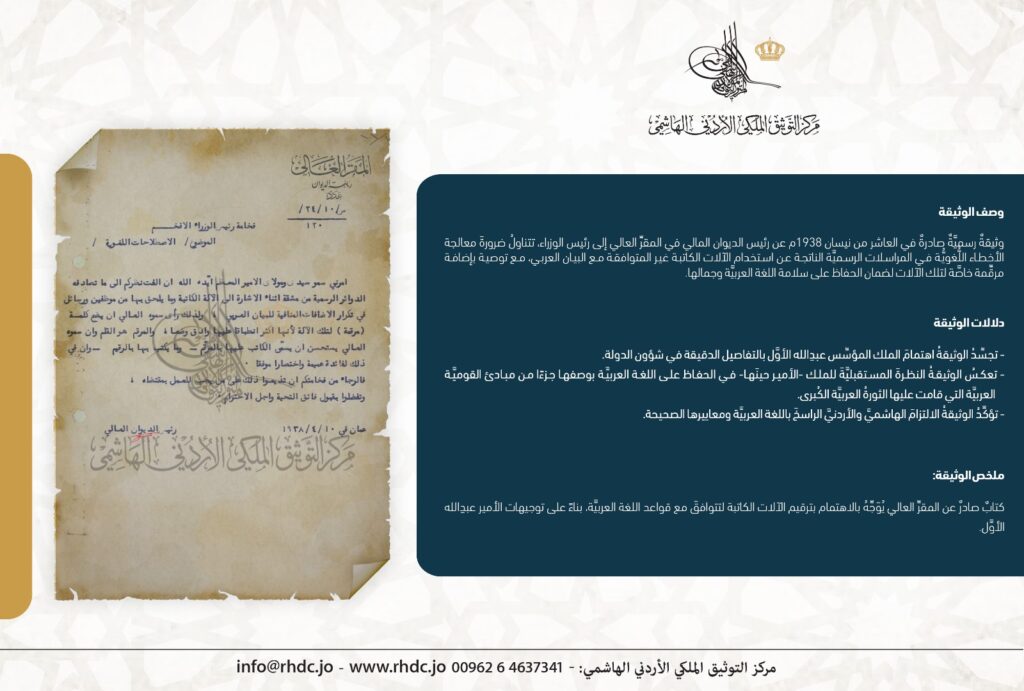 مركز التوثيق الملكي الأردني الهاشمي
المقر العالي
رئاسة الديوان
عمان
س/١٠/٢٤
١٢٠
فخامة رئيس الوزراء الافخم
الموضوع/ الاصطلاحات اللغوية /
امرني سمو سيدي ومولاي الامير المعظم ايده الله ان الفت نظركم الى ما تصادفه
الدوائر الرسمية من مشقة اثناء الاشارة الى الآلة الكاتبة وما يلحق بها من موظفين ورسائل
في تكرار الاضافات المنافية للبيان العربي ، ولذلك رأى سموه العالي ان يضع كلمة
(مرقمة) لتلك الآلة لأنها اكثر انطباقا عليها وادق وصفا ، والمرقم هو القلم وان سموه
العالي يستحسن ان يسمى الكاتب عليها بالمرقم وما يكتب بها بالرقيم وان في
ذلك لفائدة عميمة واختصارا موفقا
فالرجاء من فخامتكم ان تذيعوا ذلك على من يجب للعمل بمقتضاه ،
وتفضلوا بقبول فائق التحية واجل الاحترام
عمان في ١٩٣٨/٤/١٠ رئيس الديوان العالي
مركز التوثيق الملكي الأردني الهاشمي
وصف الوثيقة
وثيقةٌ رسميَّةٌ صادرةٌ في العاشر من نيسان 1938م عن رئيس الديوان المالي في المقرِّ العالي إلى رئيس الوزراء، تتناولُ ضرورةَ معالجة
الأخطاء اللُّغويَّة في المراسلات الرسميَّة الناتجة عن استخدام الآلات الكاتبة غير المتوافقة مع البيان العربي، مع توصية بإضافة
مرقِّمة خاصَّة لتلك الآلات لضمان الحفاظ على سلامة اللغة العربيَّة وجمالها.
دلالات الوثيقة
- تجسِّدُ الوثيقةُ اهتمامَ الملك المؤسِّس عبدالله الأوَّل بالتفاصيل الدقيقة في شؤون الدولة.
- تعكسُ الوثيقةُ النظرةَ المستقبليَّةَ للملك -الأمير حينَها- في الحفاظ على اللغة العربيَّة بوصفها جزءًا من مبادئ القوميَّة
العربيَّة التي قامت عليها الثورةُ العربيَّة الكُبرى.
- تؤكِّدُ الوثيقةُ الالتزامَ الهاشميَّ والأردنيَّ الراسخَ باللغة العربيَّة ومعاييرها الصحيحة.
ملخص الوثيقة:
كتابٌ صادرٌ عن المقرِّ العالي يُوَجِّهُ بالاهتمام بترقيم الآلات الكاتبة لتتوافقَ مع قواعد اللغة العربيَّة، بناءً على توجيهات الأمير عبدالله
الأوَّل.
مركز التوثيق الملكي الأردني الهاشمي: - 00962 6 4637341 www.rhdc.jo - info@rhdc.jo